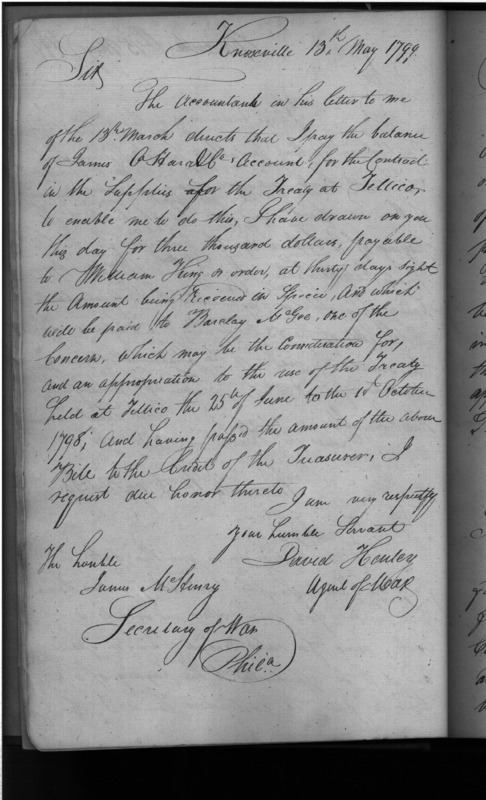 Knoxville 13th May 1799
Sir
The Accountant in his letter to me
of the 13th March directs that I pay the balance
of James O'Hara & Co. Account, for the Contract
in the Supplies for the Treaty at Tellico,
to enable me to do this, I have drawn on you
this day for three thousand dollars, payable
to William King or order, at thirty days sight
the Amount being Received in Specie, and which
will be paid to Barclay McGee, one of the
Concern, which may be the Consideration for,
and an appropriation to the use of the Treaty
held at Tellico the 25th of June to the 1st October
1798; and having passd the amount of the above
Bill to the Credit of the Treasurer, I
request due honor thereto
I am very respectfy
your humble Servant
David Henley
Agent of War
The Honble
James McHenry
Secretary of War
Phila